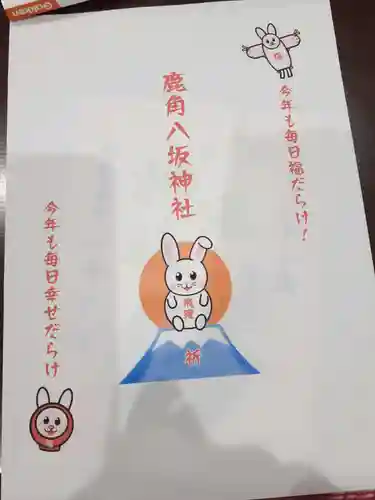 Golden
福
今年も毎日福だらけ!
鹿角八坂神社
飛躍
祈
今年も毎日幸せだらけ